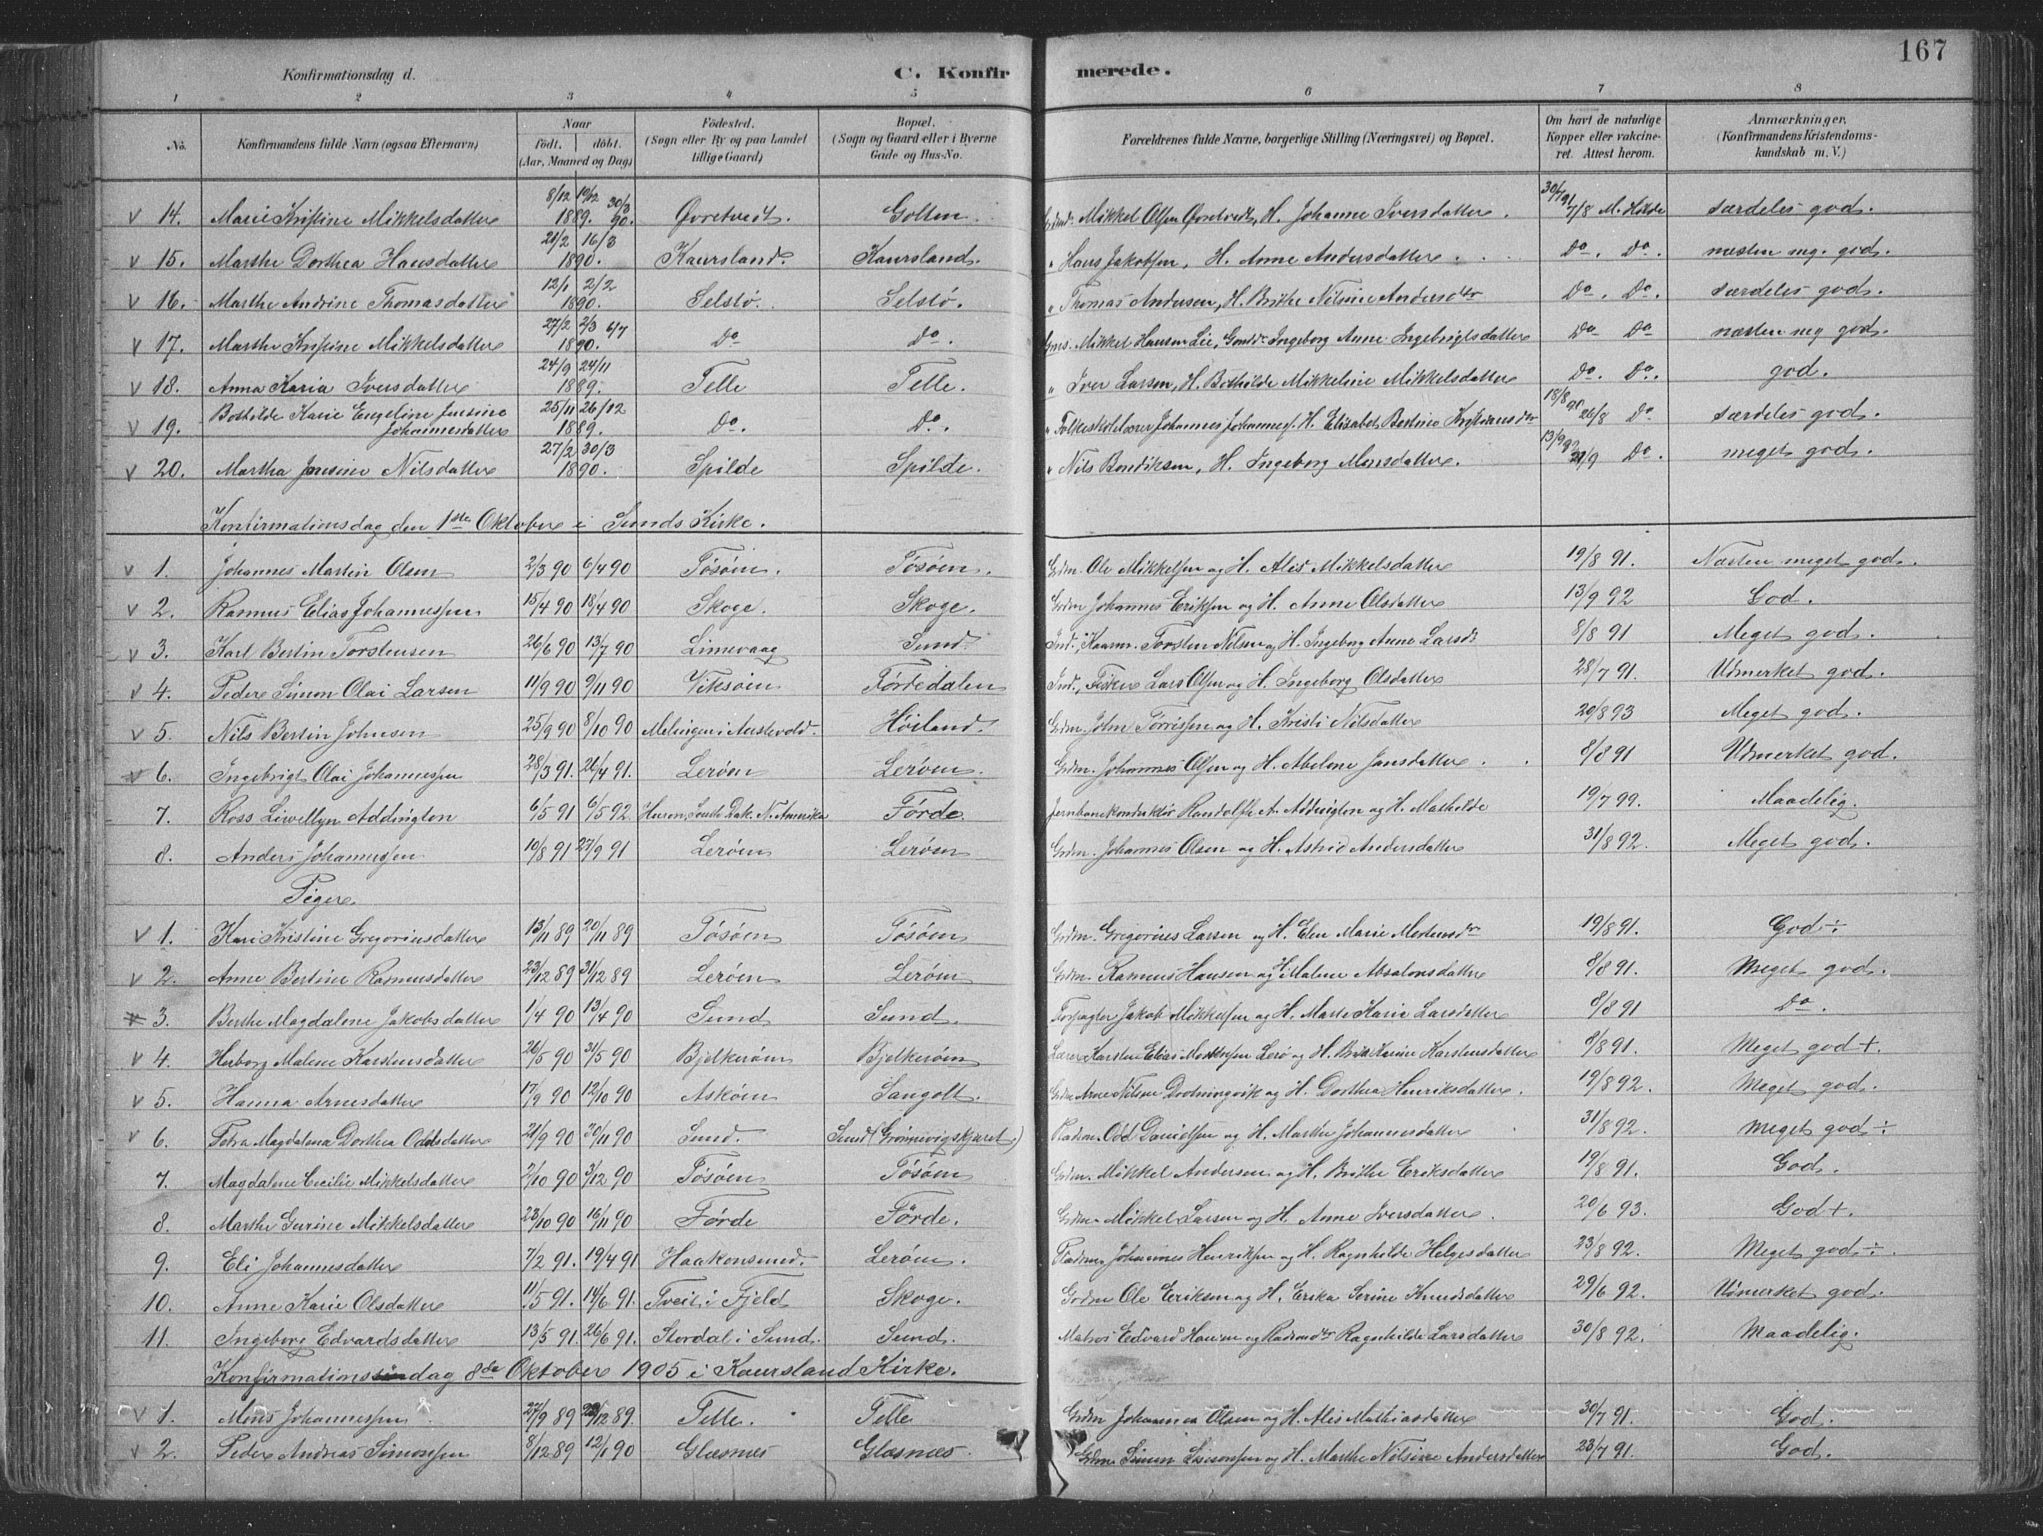 167
Konfirmationsdag d. C. Konfirmerede.
1 2 3 4 5 6 7 8
No. Konfirmandens fulde Navn (ogsaa Efternavn) Naar födt. döbt. (Aar, Maaned og Dag) Födested. (Sogn eller By og paa Landet tillige Gaard) Bopæl. (Sogn og Gaard eller i Byerne Gade og Hus-No. Forældrenes fulde Navne, borgerlige Stilling (Næringsvei) og Bopæl. Om havt de naturlige Kopper eller vakcineret. Attest herom. Anmærkninger, (Konfirmandens Kristendomskundskab m. V.)
v 14. Marie Kristine Mikkelsdatter 8/12 19/12 30/3 1889. 90. Øvretvedt. Golten Mikkel Olsen Øvretvedt, H. Johanne Iversdatter. 30/7 91 7/8 M. Hilde særdeles god.
v 15. Marthe Dorthea Hansdatter 21/2 16/3 1890. Kaursland. Kaursland. " Hans Jakobsen, H. Anne Andersdatter. Do. Do. næsten meg. god.
v 16. Marthe Andrine Thomasdatter 12/1 2/2 1890. Selstø. Selstø. " Thomas Andersen, H. Brithe Nilsine Andersdtr Do. Do. særdeles god.
v 17. Marthe Kristine Mikkelsdatter 27/2 2/3 6/7 1890. Do Do. Mikkel Hansen Lie, Ingeborg Anne Ingebrigtsdatter Do Do næsten meg god.
v 18. Anna Karia Iversdatter 24/9 24/11 1889. Telle Telle. " Iver Larsen, H. Bothilde Mikkeline Mikkelsdatter Do. Do. god.
v 19. Bothilde Karie Engeline Jensine Johannesdatter 25/11 26/12 1889. Do. Do. " Folkeskolelærer Johannes Johannes. H. Elisabet Bertine Kristiansdtr 18/8 91 26/8 Do særdeles god.
v 20. Martha Jensine Nilsdatter 27/2 30/3 1890. Spilde Spilde. " Nils Bendiksen, H. Ingeborg Monsdatter. 13/9 92 21/9 Do. meget god.
Konfirmationsdag den 1ste Oktober i Sunds Kirke.
v 1. Johannes Martin Olsen 2/3 90 6/4 90 Tøsøen. Tøsøen. Grdm. Ole Mikkelsen og H. Alis Mikkelsdatter 19/8 91. Næsten meget god.
v 2. Rasmus Elias Johannessen 15/4 90 18/4 90 Skoge. Skoge. Grdm Johannes Eriksen og H. Anne Olsdatter 13/9 92 God.
v 3. Karl Bertin Torstensen 26/6 90 13/7 90 Limevaag Sund. Ind., Torsten Nilsen og H. Ingeborg Anne Larsdt 8/8 91 Meget god.
v 4. Peder Simon Olai Larsen 11/9 90 9/11 90 Viksøen Førdedalen Ind., Fisker Lars Olsen og H. Ingeborg Olsdatter 28/7 91. Udmerket god.
v 5. Nils Bertin Johnsen 25/9 90 8/10 90 Melingen i Austevold. Høiland. Grdm. John Tørrisen og H. Kristi Nilsdatter 20/8 93 Meget god.
v 6. Ingebrigt Olai Johannessen 28/3 91. 26/4 91. Lerøen Lerøen. Grdm. Johannes Olsen og H. Abelone Jansdatter. 8/8 91 Udmerket god.
7. Ross Liwellyn Addington 6/5 91 6/5 92 Huron, South Dak. N. Amerika Førde. Jernbanekonduktør Randolph A. Addington og H. Mathilde 19/7 99. Maadelig.
8. Anders Johannessen 10/8 91 27/9 91 Lerøen Lerøen Grdm. Johannes Olsen og H. Astrid Andersdatter 31/8 92. Meget god.
Piger.
v 1. Kari Kristine Gregoriusdatter 13/11 89 20/11 89 Tøsøen Tøsøen Grdm. Gregorius Larsen og H. Elen Marie 19/8 91. God ÷
v 2. Anne Bertine Rasmusdatter 23/12 89 31/12 89 Lerøen Lerøen Grdm. Rasmus Hansen og H. Malene Absalonsdatter 8/8 91. Meget god.
3. Berthe Magdalene Jakobsdatter 1/4 90 13/4 90 Sund Sund. Forpagter Jakob Mikkelsen og H. Marte Karie Larsdatter 8/8 91 Do.
v 4. Herborg Malene Karstensdatter 26/5 90 31/5 90 Bjelkerøen Bjelkerøen Lærer Karsten Elias Lerø og H. Karstensdatter 8/8 91. Meget god +.
v 5. Hanna Arnesdatter 17/9 90 12/10 90 Askøen Sangolt. Grdm Arne Nilsen Drotningvik og H. Dorthea Henriksdatter. 19/8 92. Meget god.
v 6. Petra Magdalena Dorthea Oddsdatter 21/9 90 30/11 90 Sund. Sund (Grønevigskjæret.) Pladsm. Odd Davidsen og H. Marthe Johannesdatter 31/8 92. Meget god ÷
7. Magdalene Cecilie Mikkelsdatter 2/10 90 3/12 90 Tøsøen Tøsøen Grdm. Mikkel Andersen og H. Brithe Eriksdatter 19/8 91. God.
8. Marthe Gurine Mikkelsdatter 23/10 90 16/11 90 Førde Førde. Grdm. Mikkel Larsen og H. Anne Iversdatter. 20/6 93. God +.
9. Eli Johannesdatter 7/2 91. 19/4 91 Haakonsund. Lerøen. Pladsm. Johannes Henriksen og H. Ragnhilde Helgesdatter 23/8 92. Meget god ÷.
10. Anne Karie Olsdatter 11/5 91. 14/6 91. Tveit i Fjeld Skoge. Grdm Ole Eriksen og H. Erika Serine Knudsdatter 29/6 92. Udmerket god.
11. Ingeborg Edvardsdatter 13/5 91. 26/6 91. Stordal i Sund. Sund. Matros Edvard Hansen og Ragnhilde Larsdatter 30/8 92. Maadelig.
Konfirmationsdag 8de Oktober 1905 i Kaursland Kirke.
v 1. Mons Johannessen 27/9 89 29/12 89. Telle. Telle Grdm Johannes Olsen og H. Alis Mathiasdatter 30/7 91. God.
v 2. Peder Andreas Simonsen 8/12 89 12/1 90 Glæsnes Glæsnes. Grdm Simon Simonsen og H. Marthe Nilsine Andersdatter 23/7 91. God.